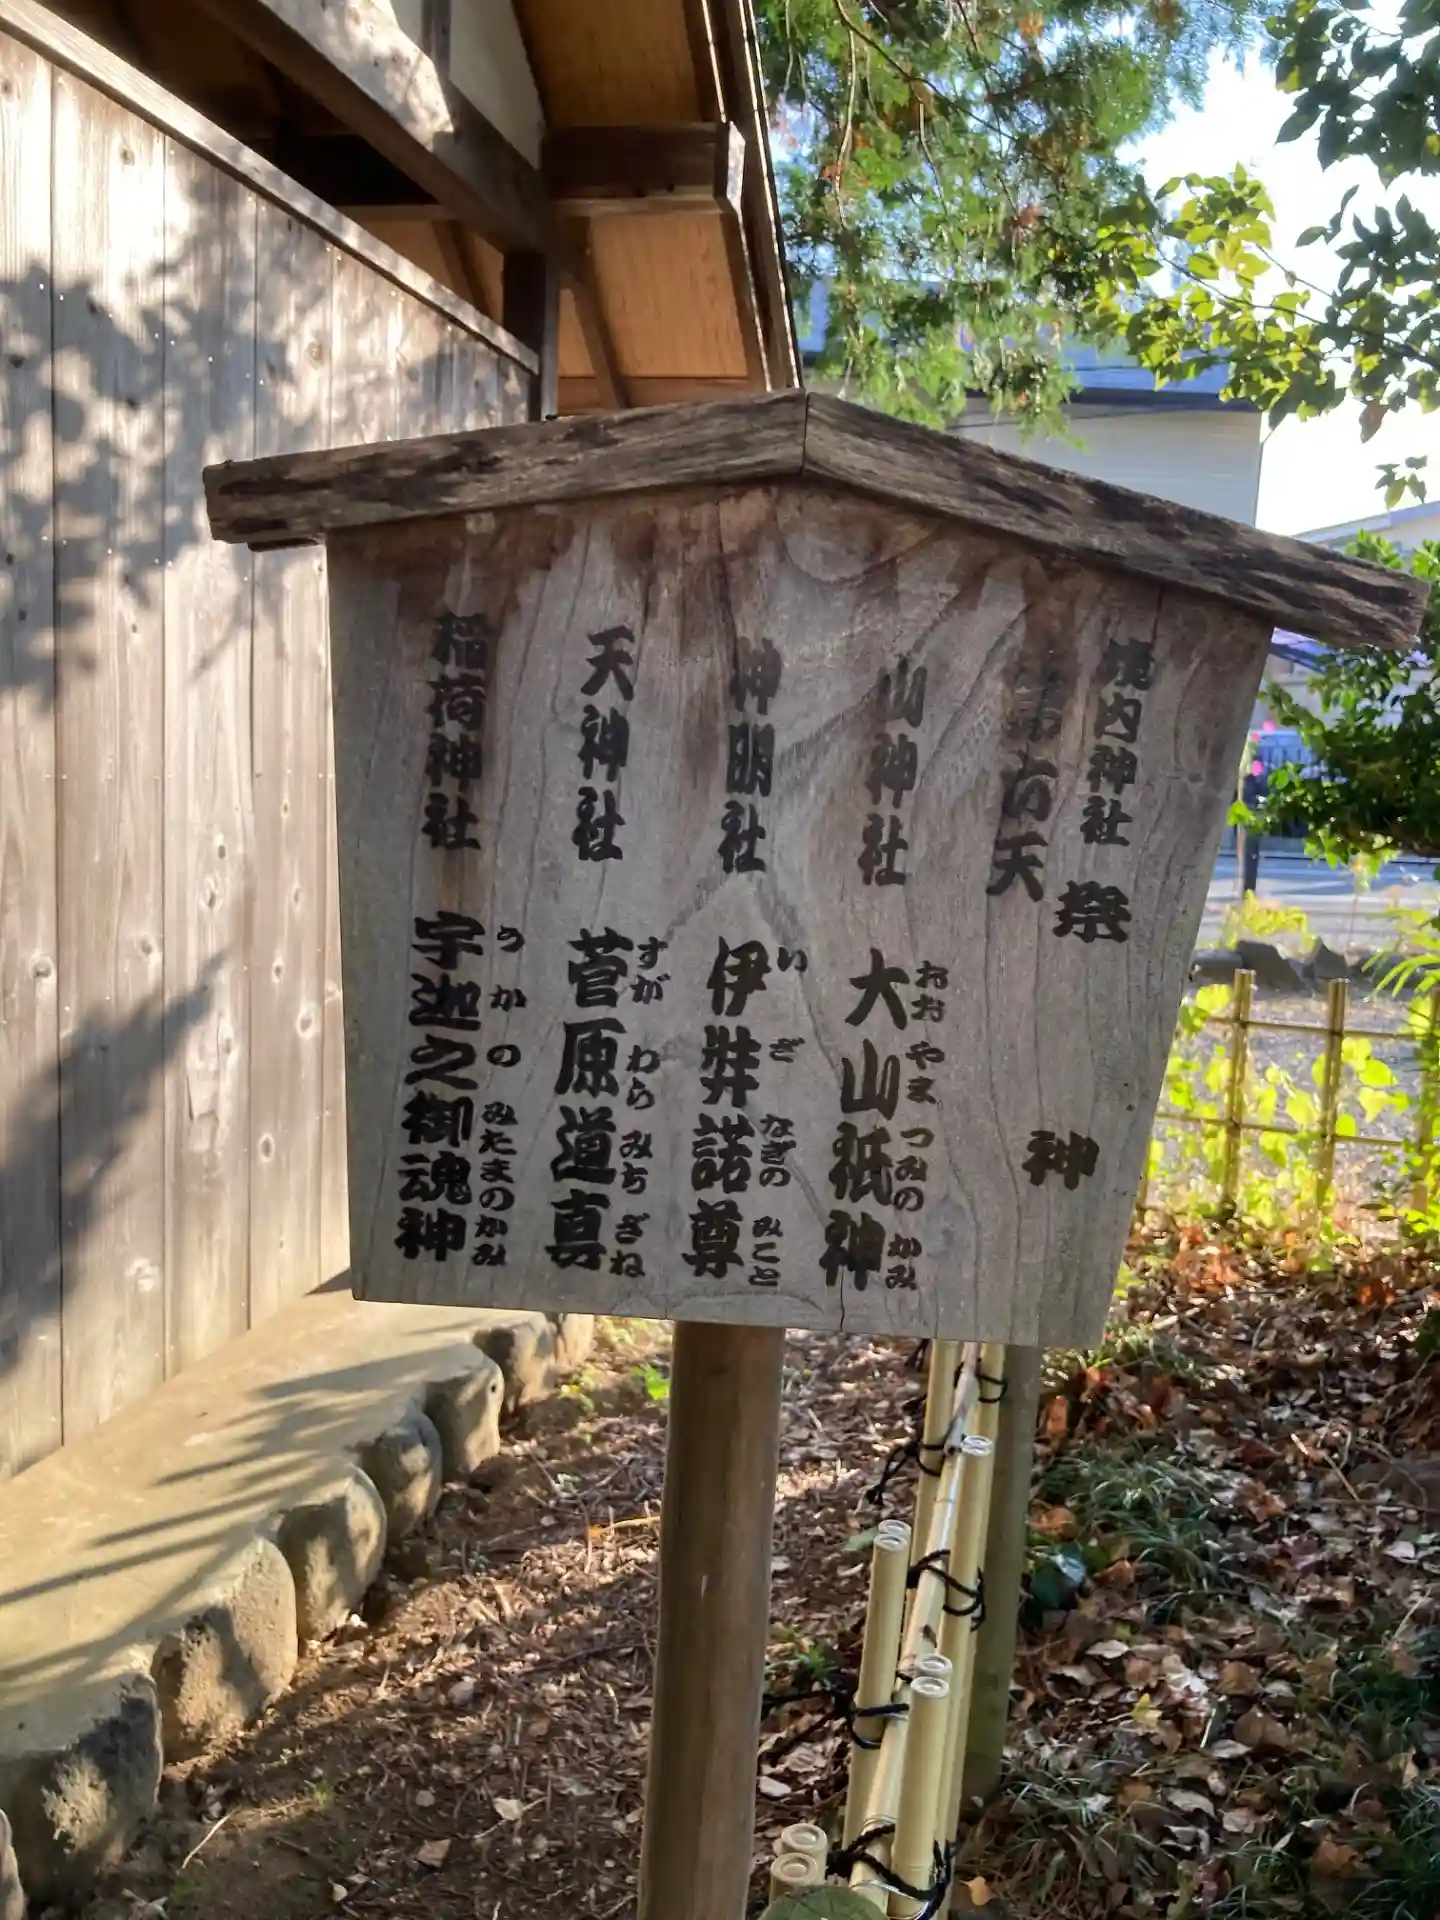 境内神社 祭神
第六天
山神社 大山祇神
おおやまつみのかみ
神明社 伊弉諾尊
いざなぎのみこと
天神社 菅原道真
すがわらみちざね
稲荷神社 宇迦之御魂神
うかのみたまのかみ